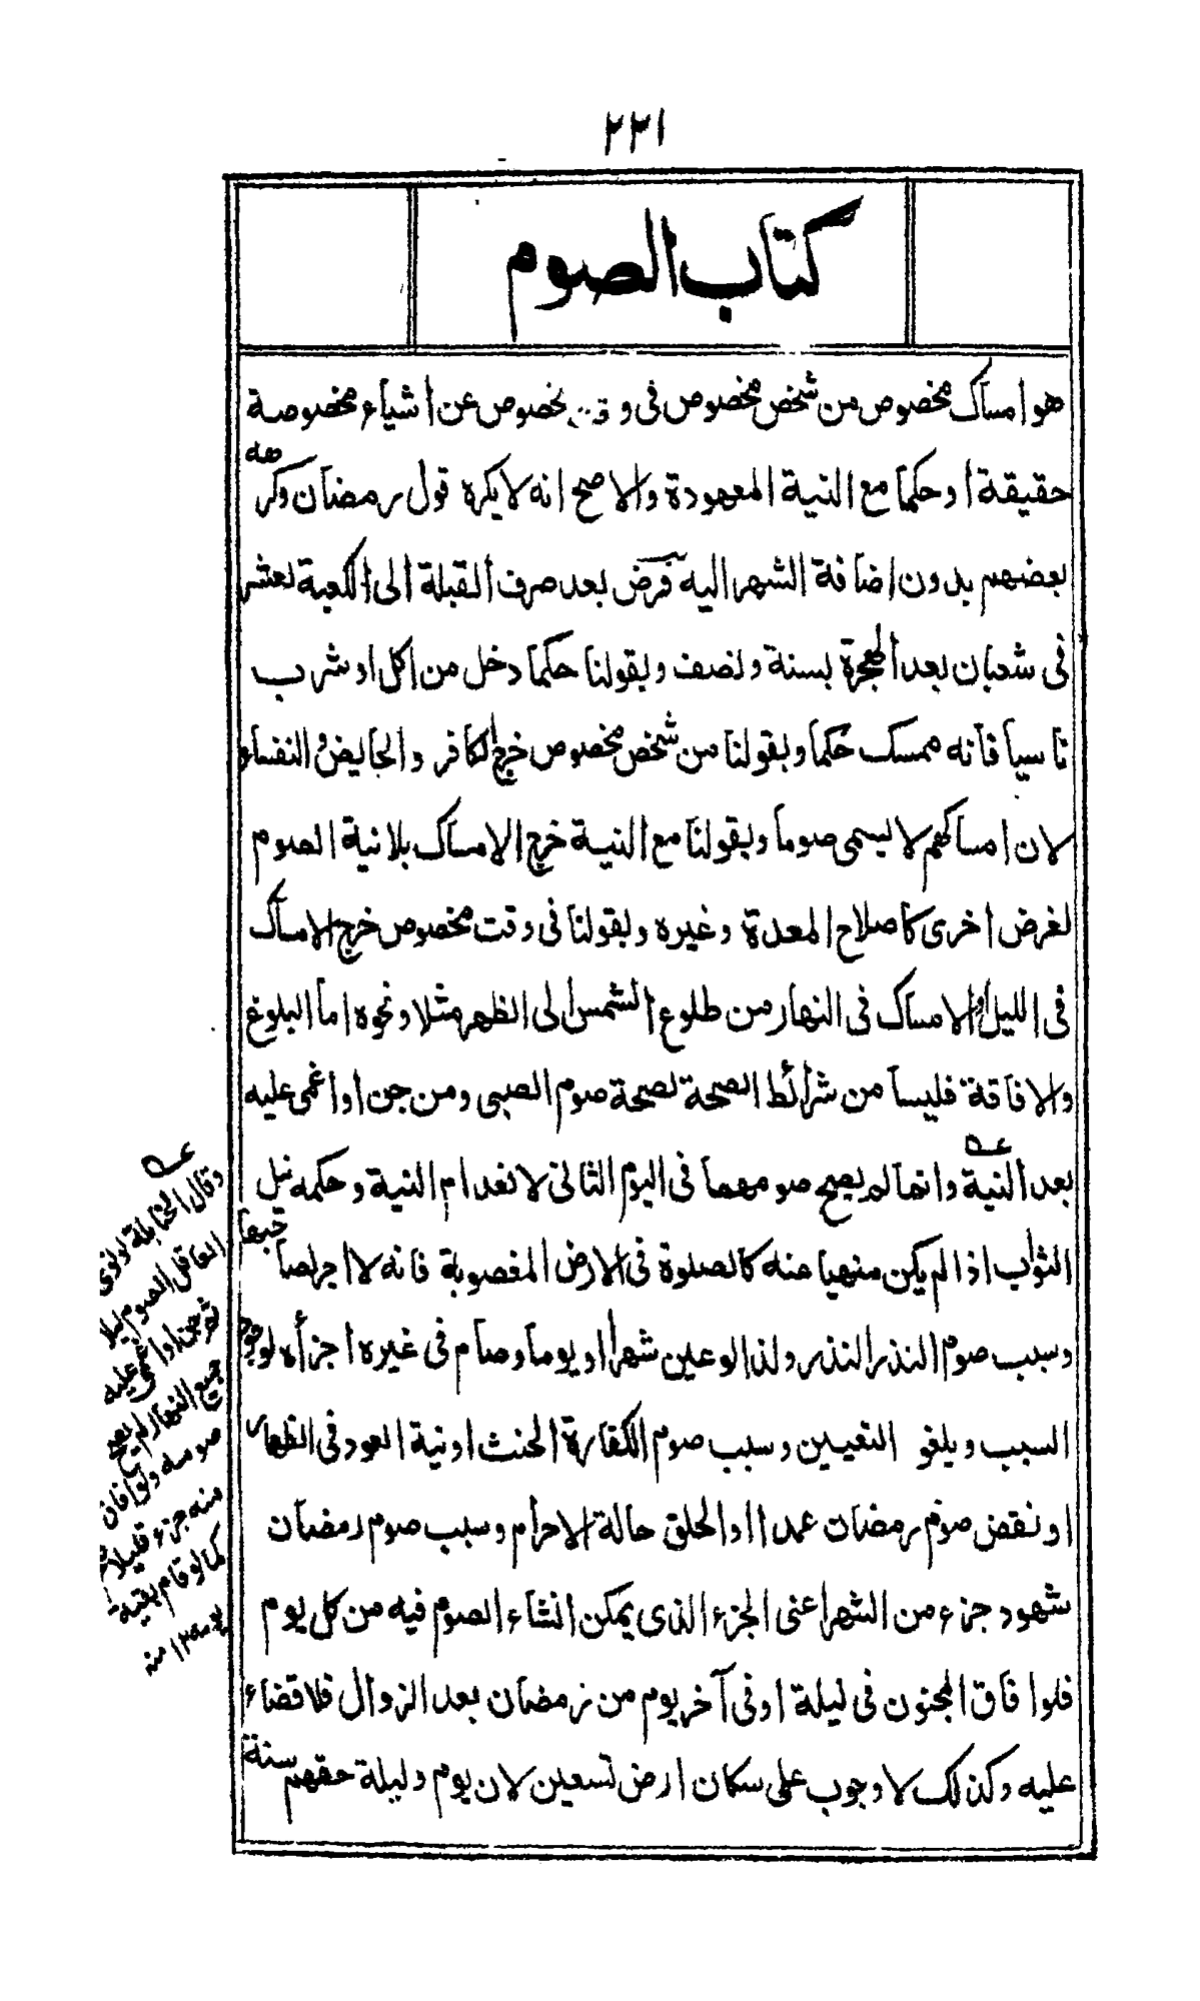 ٢٢١
كتاب الصوم
هو امساك مخصوص من شخص مخصوص فى مخصوص عن اشياء مخصوصة
حقيقة او حكما مع النية المعهودة والاصح انه لا يكره قول رمضان وكرهه
بعضهم بدون اضافة الشهر اليه فرض بعد صرف القبلة الى الكعبة لعشر
فى شعبان بعد الهجرة بسنة ونصف وبقولنا حكما دخل من اكل او شرب
ناسيا فانه ممسك حكما وبقولنا من شخص مخصوص خرج الكافر والحايض والنفساء
لان امساكهم لا يسمى صوما وبقولنا مع النية خرج الامساك بلا نية الصوم
لغرض اخرى كاصلاح المعدة وغيره وبقولنا فى وقت مخصوص خرج الامساك
فى الليل والامساك فى النهار من طلوع الشمس الى الظهر مثلا ونحوه اما البلوغ
والافاقة فليسا من شرائط الصحة لصحة صوم الصبى ومن جن او اغمى عليه
بعد النية وانما لم يصح صومهما فى اليوم الثانى لانعدام النية وحكمه نيل
الثواب اذا لم يكن منهيا عنه كالصلوة فى الارض المغصوبة فانه لا اجر اصلا
وسبب صوم النذر النذر ولذا لو عين شهرا او يوما وصام فى غيره اجزأه لوجود
السبب ويلغو التعيين وسبب صوم الكفارة الحنث او نية العود فى الظهار
او نقض صوم رمضان عمدا او الحلق حالة الاحرام وسبب صوم رمضان
شهود جزء من الشهر اعنى الجزء الذى يمكن انشاء الصوم فيه من كل يوم
فلو افاق المجنون فى ليلة او فى آخر يوم من رمضان بعد الزوال فلا قضاء
عليه وكذلك لا وجوب على سكان ارض تسعين لان يوم وليلة حقهم سنة
وقال الحنابلة لو نوى
العاقل الصوم ليلا
ثم جن او اغمى عليه
جميع النهار لم يصح
صومه ولو افاق
منه جزء قليلا
كما لو قام بقية
يومه ١٢ منه